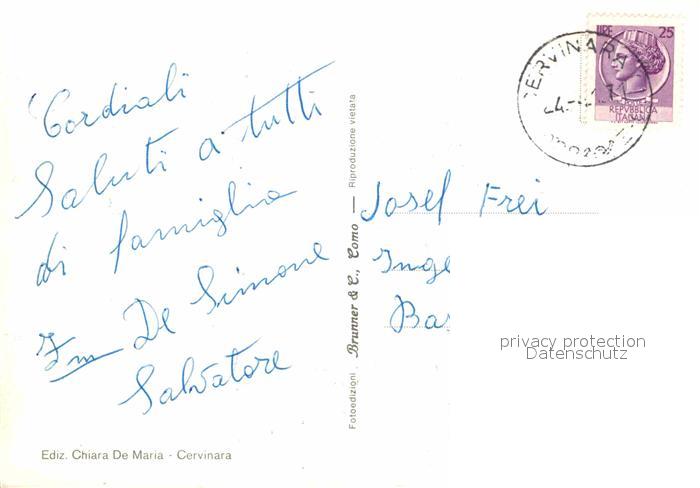 Cordiali
Saluti a tutti
di famiglia
Fm De Simone
Salvatore
Ediz. Chiara De Maria - Cervinara
Fotoedizioni Brunner & C., Como — Riproduzione vietata
LIRE 25
REPVBBLICA
ITALIANA
CERVINARA
Josef Frei
Inge
Ba
privacy protection
Datenschutz